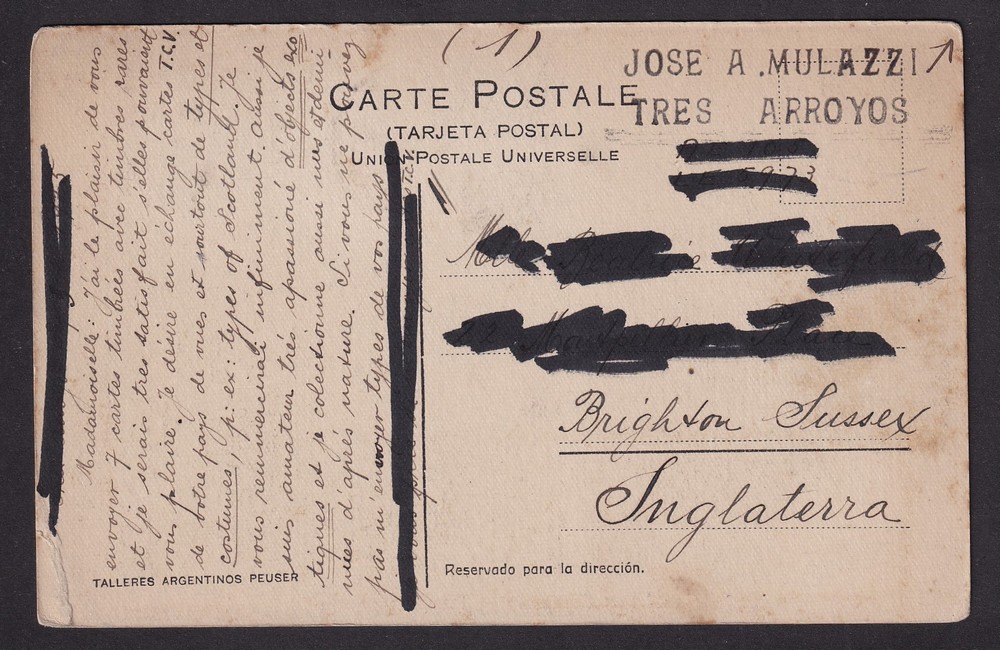 (1)
JOSE A. MULAZZI
TRES ARROYOS
CARTE POSTALE
(TARJETA POSTAL)
UNION POSTALE UNIVERSELLE
Brighton Sussex
Inglaterra
Reservado para la dirección.
TALLERES ARGENTINOS PEUSER
Madamoiselle: J'ai le plaisir de vous
envoyer 7 cartes timbrées avec timbres rares
et je serais tres satisfait s'elles pouvaient
vous plaire. Je désire en échange cartes T.C.V.
de votre pays de vues et surtout de types et
costumes, p: ex: types of Scotland. Je
vous remercierai infiniment. Aussi je
suis amateur trés apassioné d'objects exo
tiques et je colectionne aussi nus et demi
nues d'aprés nature. Si vous ne pouvez
pas m'envoyer types de vos pays
T.C.V.